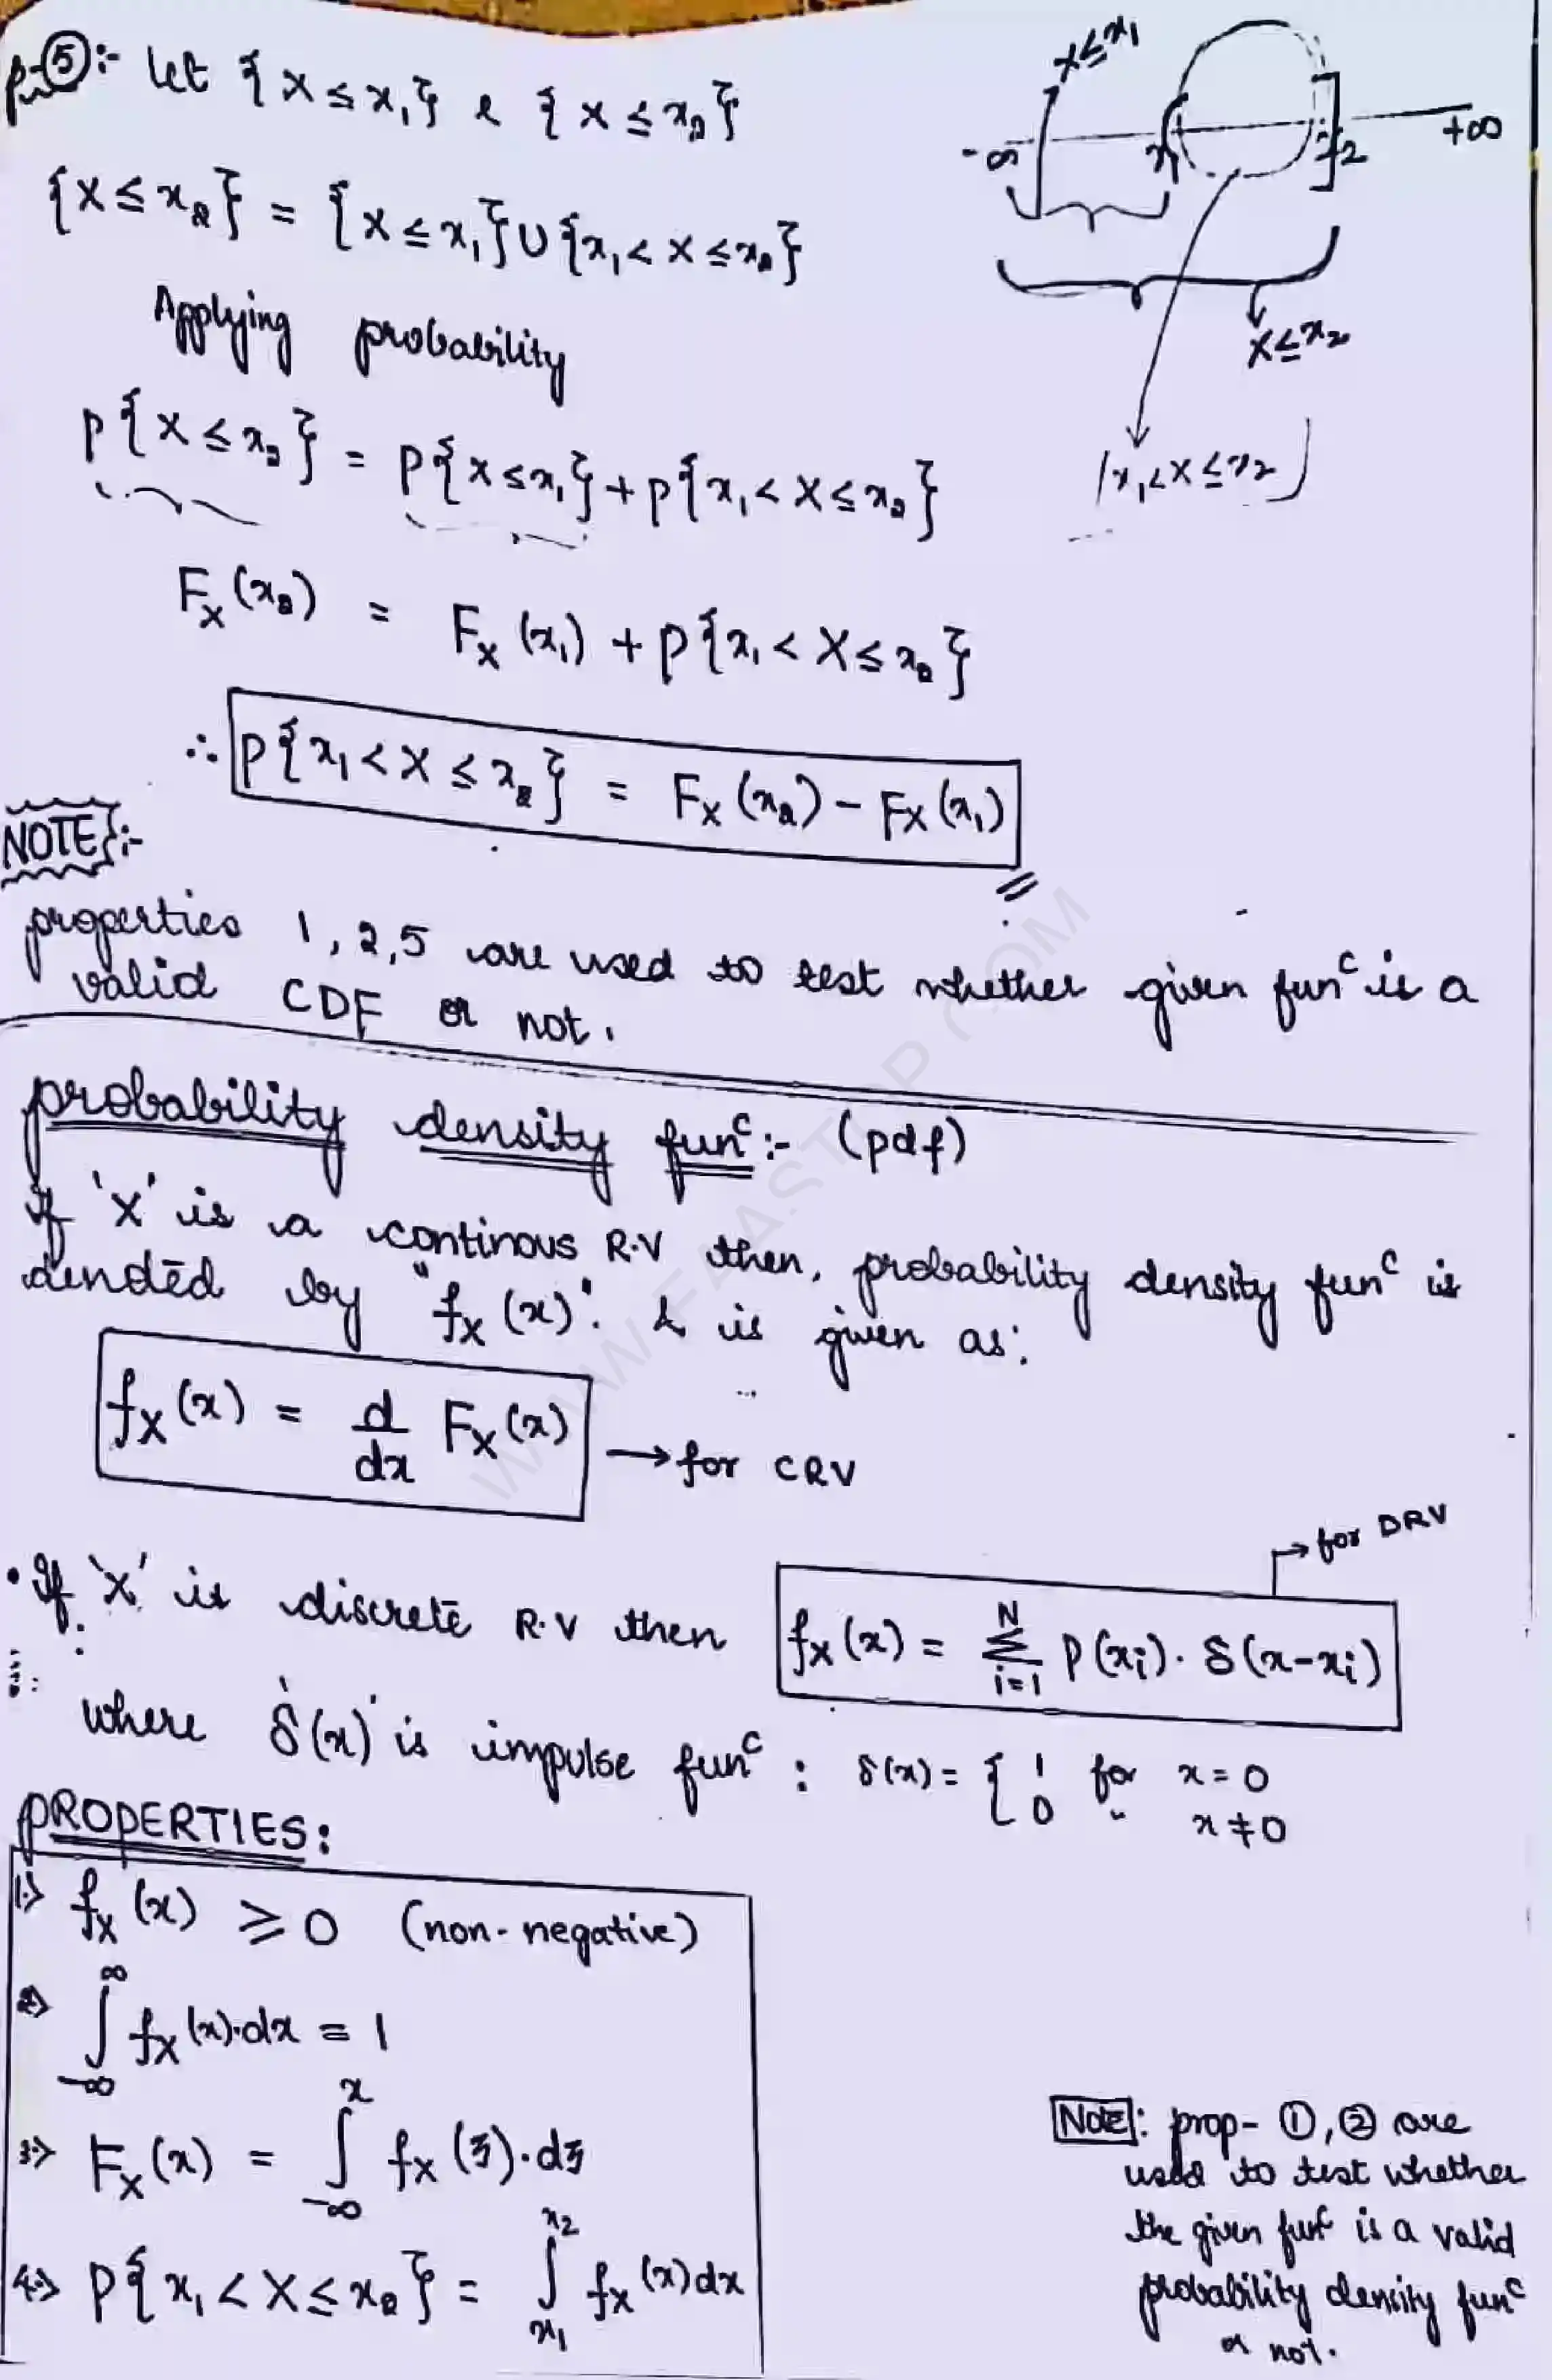 p-⑤:- let {X ≤ x₁} & {X ≤ x₂}
{X ≤ x₂} = {X ≤ x₁} ∪ {x₁ < X ≤ x₂}
Applying probability
P{X ≤ x₂} = P{X ≤ x₁} + P{x₁ < X ≤ x₂}
F_X(x₂) = F_X(x₁) + P{x₁ < X ≤ x₂}
∴ P{x₁ < X ≤ x₂} = F_X(x₂) - F_X(x₁)
X ≤ x₁
-∞ x₁ x₂ +∞
X ≤ x₂
(x₁ < X ≤ x₂]
NOTE:-
properties 1, 2, 5 are used to test whether given funᶜ is a
valid CDF or not.
probability density funᶜ:- (pdf)
if 'X' is a continous R.V then, probability density funᶜ is
denoted by "f_X(x)". & is given as:
f_X(x) = d/dx F_X(x) → for CRV
→ for DRV
• If 'X' is discrete R.V then f_X(x) = Σ_{i=1}^{N} P(xᵢ). δ(x-xᵢ)
where 'δ(x)' is impulse funᶜ : δ(x) = { 1 for x = 0
0 " x ≠ 0
PROPERTIES:
1.> f_X(x) ≥ 0 (non-negative)
2> ∫_{-∞}^{∞} f_X(x).dx = 1
3.> F_X(x) = ∫_{-∞}^{x} f_X(ξ).dξ
4.> P{x₁ < X ≤ x₂} = ∫_{x₁}^{x₂} f_X(x) dx
Note: prop- ①, ② are
used to test whether
the given funᶜ is a valid
probability density funᶜ
or not.
WWW.FAASTOP.COM